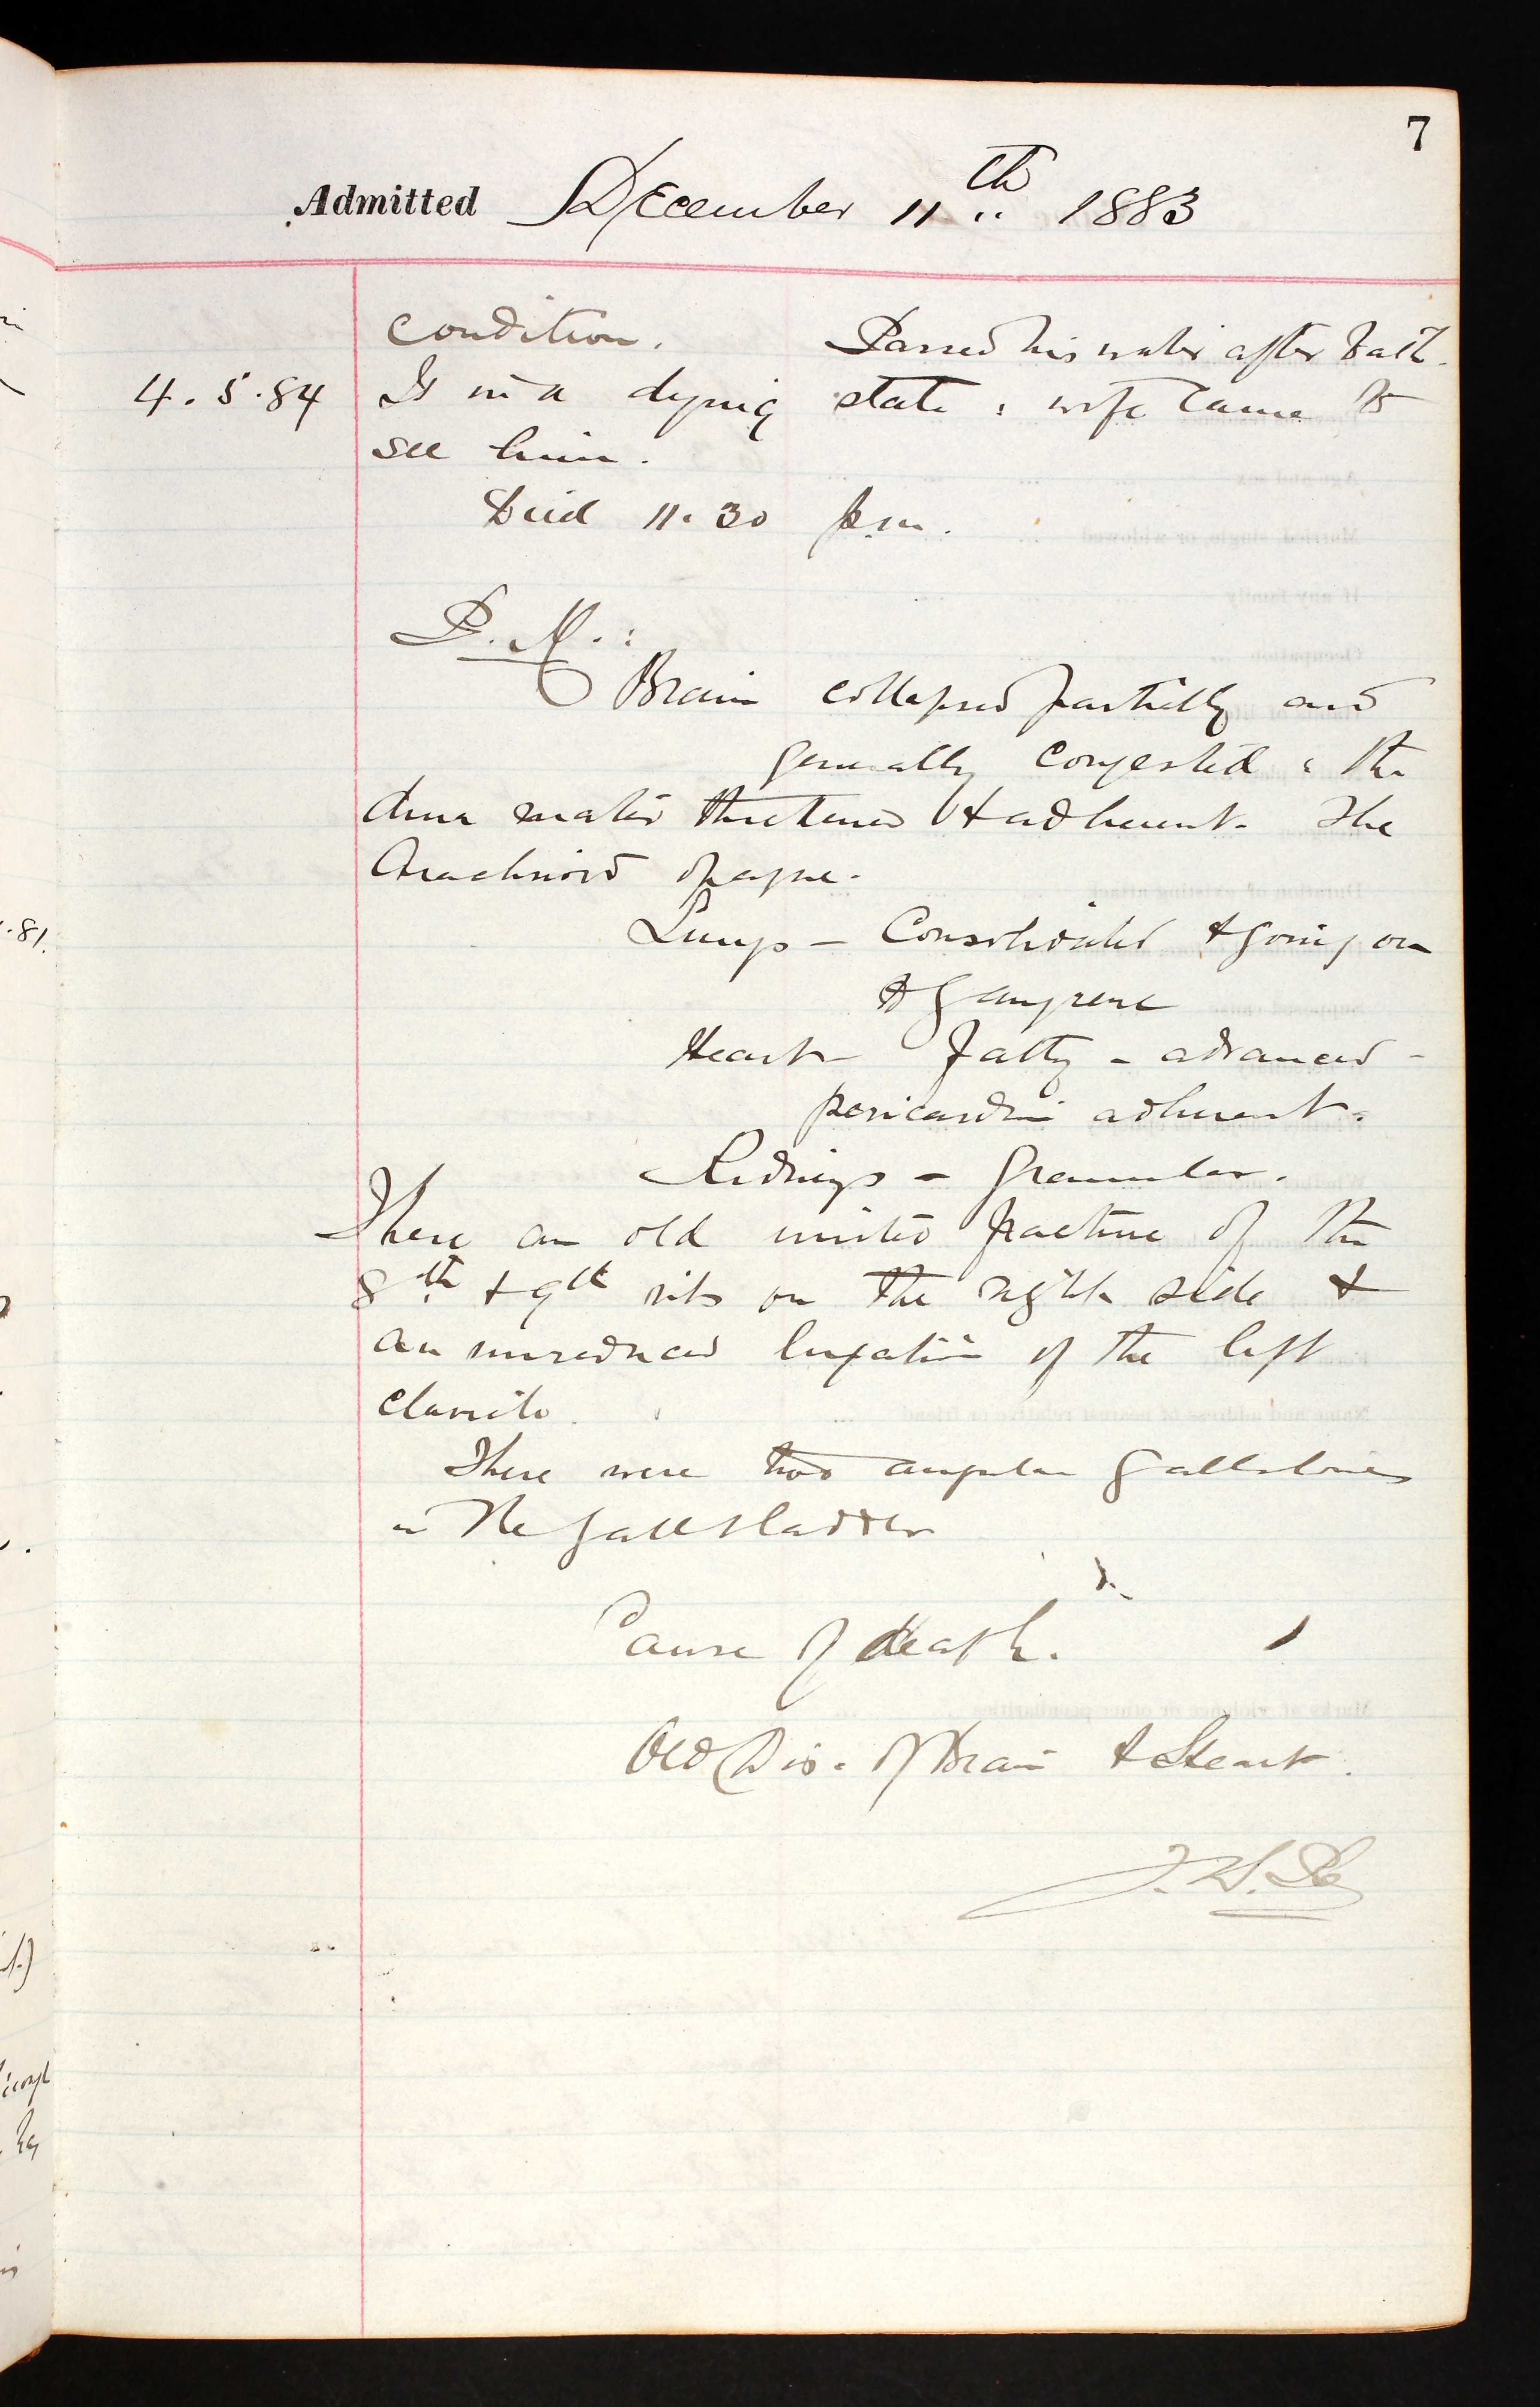 7
Admitted December 11th 1883
condition. Passed his water after bath.
4.5.84 Is in a dying state : wife came to
see him.
Died 11.30 p.m.
P.M.:
Brain collapsed partially and
generally congested : the
dura mater thickened & adherent. The
Arachnoid opaque.
Lungs – Consolidated & going on
to gangrene
Heart – Fatty – advanced –
pericardm adherent.
Kidneys – granular.
There an old united fracture of the
8th & 9th ribs on the right side &
an unreduced luxation of the left
clavicle.
There were two angular gallstones
in the gallbladder
Cause of death.
Old Dis. of Brain & Heart.
.81.